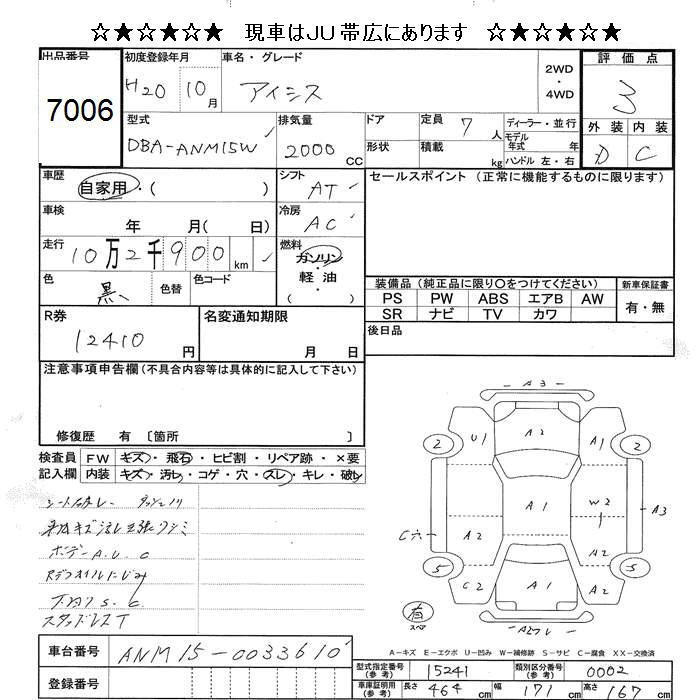 ☆★☆★☆★ 現車はJU帯広にあります ☆★☆★☆★
出品番号 7006
初度登録年月 H20 10月
車名・グレード アイシス
2WD・4WD
評価点 3
外装 D 内装 C
型式 DBA-ANM15W
排気量 2000 CC
ドア 形状
定員 7 人
積載 kg
ディーラー・並行
モデル年式 年
ハンドル 左・右
車歴 自家用・( )
シフト AT
セールスポイント (正常に機能するものに限ります)
車検 年 月( 日)
冷房 AC
走行 10万2千900 km
燃料 ガソリン・軽油 ( )
色 黒
色替
色コード
装備品(純正品に限り○をつけてください)
新車保証書 有・無
PS PW ABS エアB AW
SR ナビ TV カワ
R券 12410 円
名変通知期限 月 日
後日品
注意事項申告欄(不具合内容等は具体的に記入して下さい)
修復歴 有 〔箇所 〕
検査員記入欄
FW キズ・飛石・ヒビ割・リペア跡・×要
内装 キズ・汚れ・コゲ・穴・スレ・キレ・破れ
ボデーA.U.C
下廻りS.C
スタッドレスT
A3
2 U1 A2 A1 2
A1 W2 A3
C穴 A2 A2
5 C2 A1 A2 5
有 スペア
A-キズ E-エクボ U-凹み W-補修跡 S-サビ C-腐食 XX-交換済
車台番号 ANM15-0033610
登録番号
型式指定番号(参考) 15241
類別区分番号(参考) 0002
車庫証明用(参考) 長さ 464 cm 幅 171 cm 高さ 167 cm